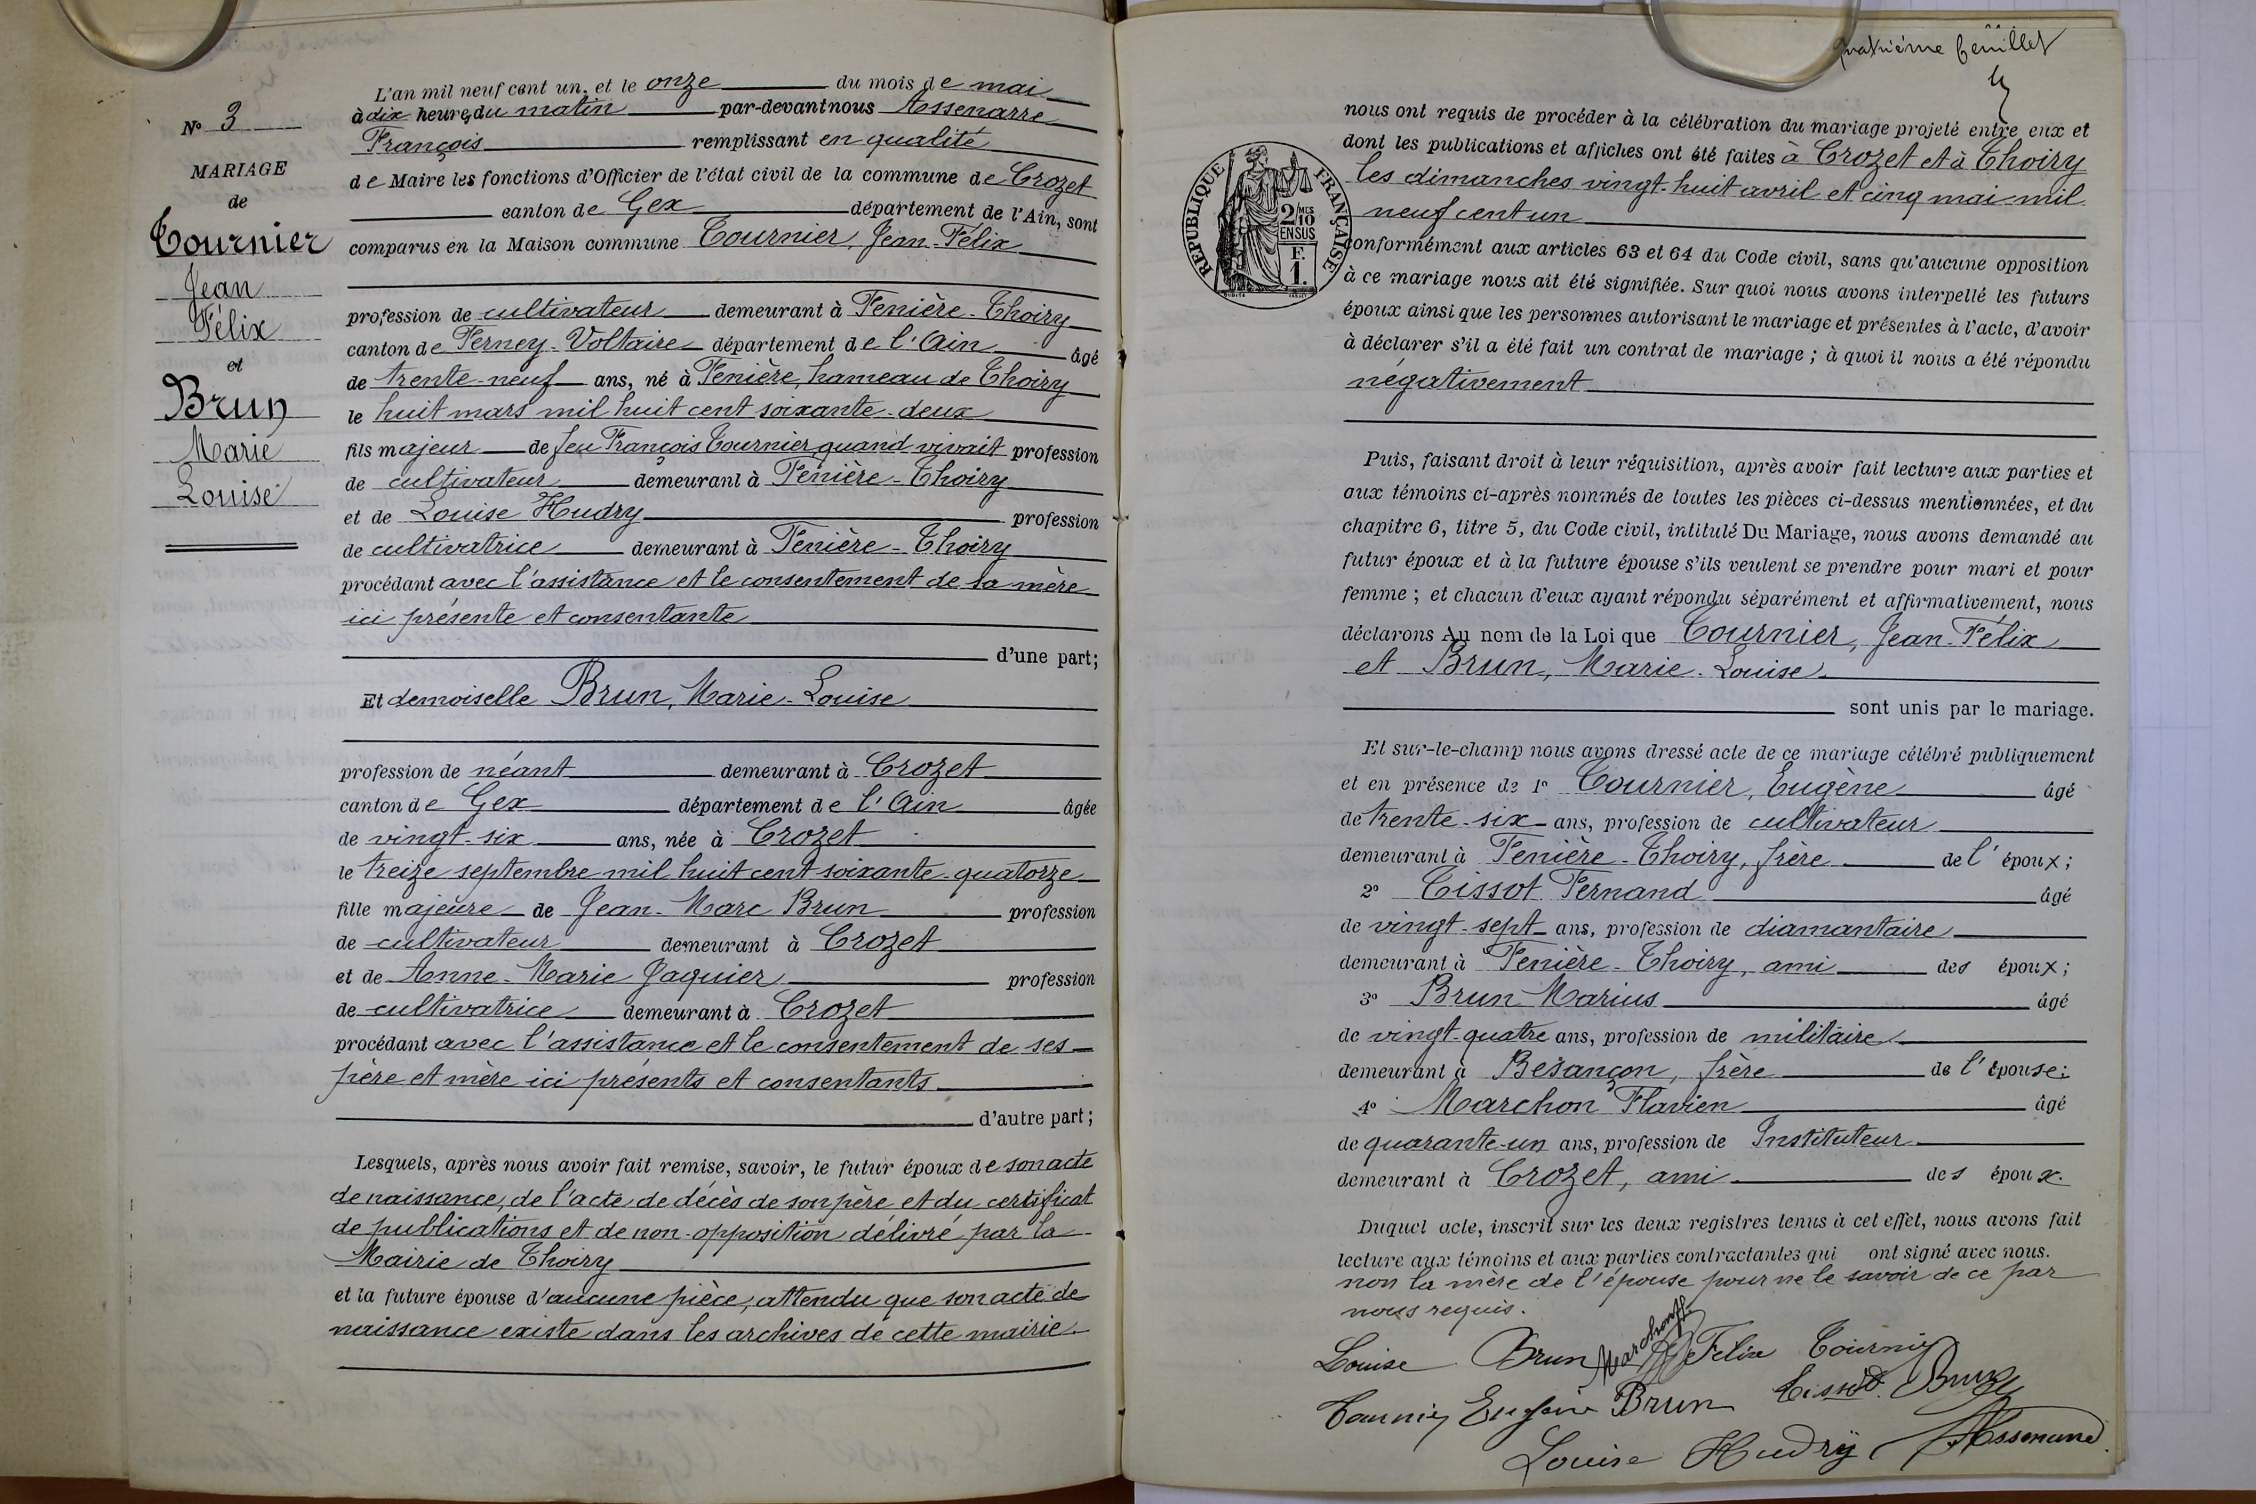 N° 3
MARIAGE
de
Tournier
Jean
Félix
et
Brun
Marie
Louise
L'an mil neuf cent un, et le onze du mois de mai
à dix heures du matin par-devant nous Assenarre
François remplissant en qualité
de Maire les fonctions d'Officier de l'état civil de la commune de Crozet
canton de Gex département de l'Ain, sont
comparus en la Maison commune Tournier, Jean-Félix
profession de cultivateur demeurant à Fenière-Thoiry
canton de Ferney-Voltaire département de l'Ain âgé
de trente-neuf ans, né à Fenière, hameau de Thoiry
le huit mars mil huit cent soixante-deux
fils majeur de feu François Tournier quand vivait profession
de cultivateur demeurant à Fenière-Thoiry
et de Louise Hudry profession
de cultivatrice demeurant à Fenière-Thoiry
procédant avec l'assistance et le consentement de sa mère
ici présente et consentante
d'une part;
Et demoiselle Brun, Marie-Louise
profession de néant demeurant à Crozet
canton de Gex département de l'Ain âgée
de vingt-six ans, née à Crozet
le treize septembre mil huit cent soixante-quatorze
fille majeure de Jean-Marc Brun profession
de cultivateur demeurant à Crozet
et de Anne-Marie Jaquier profession
de cultivatrice demeurant à Crozet
procédant avec l'assistance et le consentement de ses
père et mère ici présents et consentants
d'autre part;
Lesquels, après nous avoir fait remise, savoir, le futur époux de son acte
de naissance, de l'acte de décès de son père et du certificat
de publications et de non-opposition délivré par la
Mairie de Thoiry
et la future épouse d'aucune pièce, attendu que son acte de
naissance existe dans les archives de cette mairie.
quatrième feuillet
RÉPUBLIQUE FRANÇAISE
2/10 MES
EN SUS
F.
1.
nous ont requis de procéder à la célébration du mariage projeté entre eux et
dont les publications et affiches ont été faites à Crozet et à Thoiry
les dimanches vingt-huit avril et cinq mai mil
neuf cent un
conformément aux articles 63 et 64 du Code civil, sans qu'aucune opposition
à ce mariage nous ait été signifiée. Sur quoi nous avons interpellé les futurs
époux ainsi que les personnes autorisant le mariage et présentes à l'acte, d'avoir
à déclarer s'il a été fait un contrat de mariage; à quoi il nous a été répondu
négativement
Puis, faisant droit à leur réquisition, après avoir fait lecture aux parties et
aux témoins ci-après nommés de toutes les pièces ci-dessus mentionnées, et du
chapitre 6, titre 5, du Code civil, intitulé Du Mariage, nous avons demandé au
futur époux et à la future épouse s'ils veulent se prendre pour mari et pour
femme; et chacun d'eux ayant répondu séparément et affirmativement, nous
déclarons Au nom de la Loi que Tournier, Jean-Félix
et Brun, Marie-Louise
sont unis par le mariage.
Et sur-le-champ nous avons dressé acte de ce mariage célébré publiquement
et en présence de 1° Tournier, Eugène âgé
de trente-six ans, profession de cultivateur
demeurant à Fenière-Thoiry, frère de l'époux;
2° Tissot Fernand âgé
de vingt-sept ans, profession de diamantaire
demeurant à Fenière-Thoiry, ami des époux;
3° Brun Marius âgé
de vingt-quatre ans, profession de militaire
demeurant à Besançon, frère de l'épouse;
4° Marchon Flavien âgé
de quarante-un ans, profession de Instituteur
demeurant à Crozet, ami des époux.
Duquel acte, inscrit sur les deux registres tenus à cet effet, nous avons fait
lecture aux témoins et aux parties contractantes qui ont signé avec nous.
non la mère de l'épouse pour ne le savoir de ce par
nous requis.
Louise Brun Marchon Félix Tournier
Tournier Eugène Brun Tissot Brun
Louise Hudry Assenarre